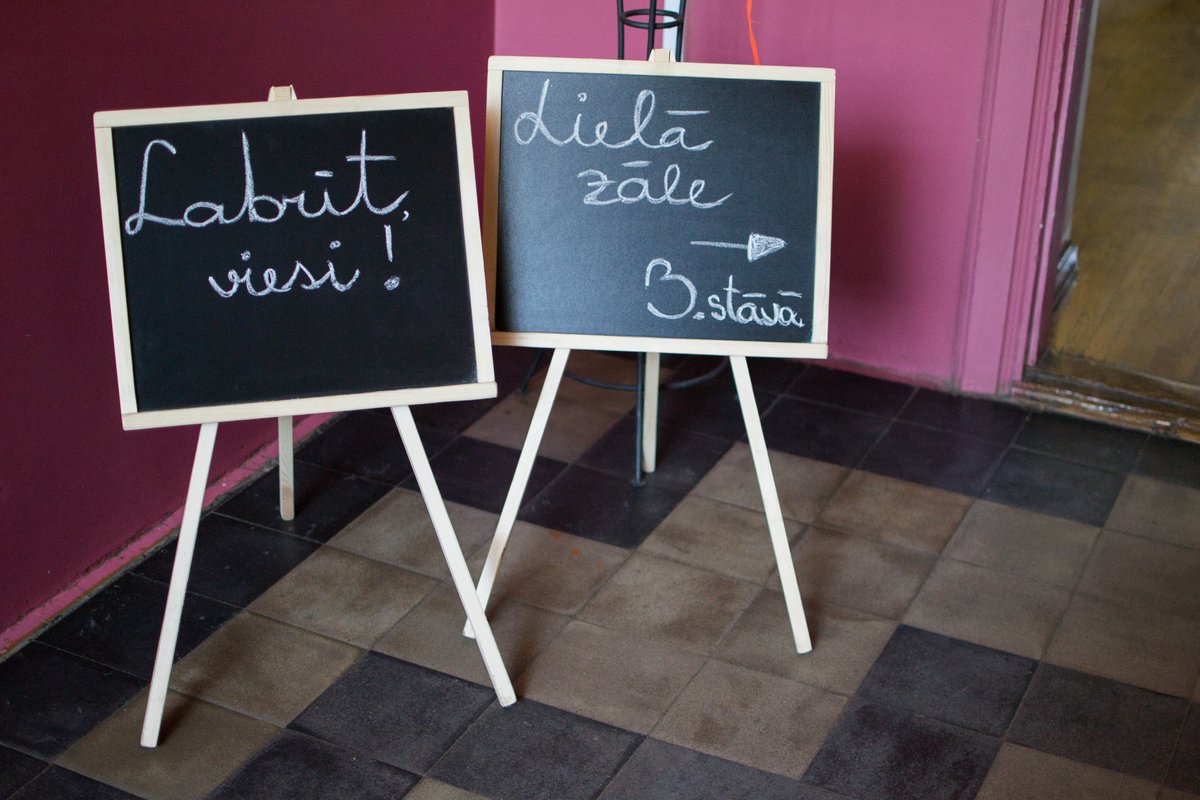 Labrīt,
viesi!
Lielā
zāle
3. stāvā